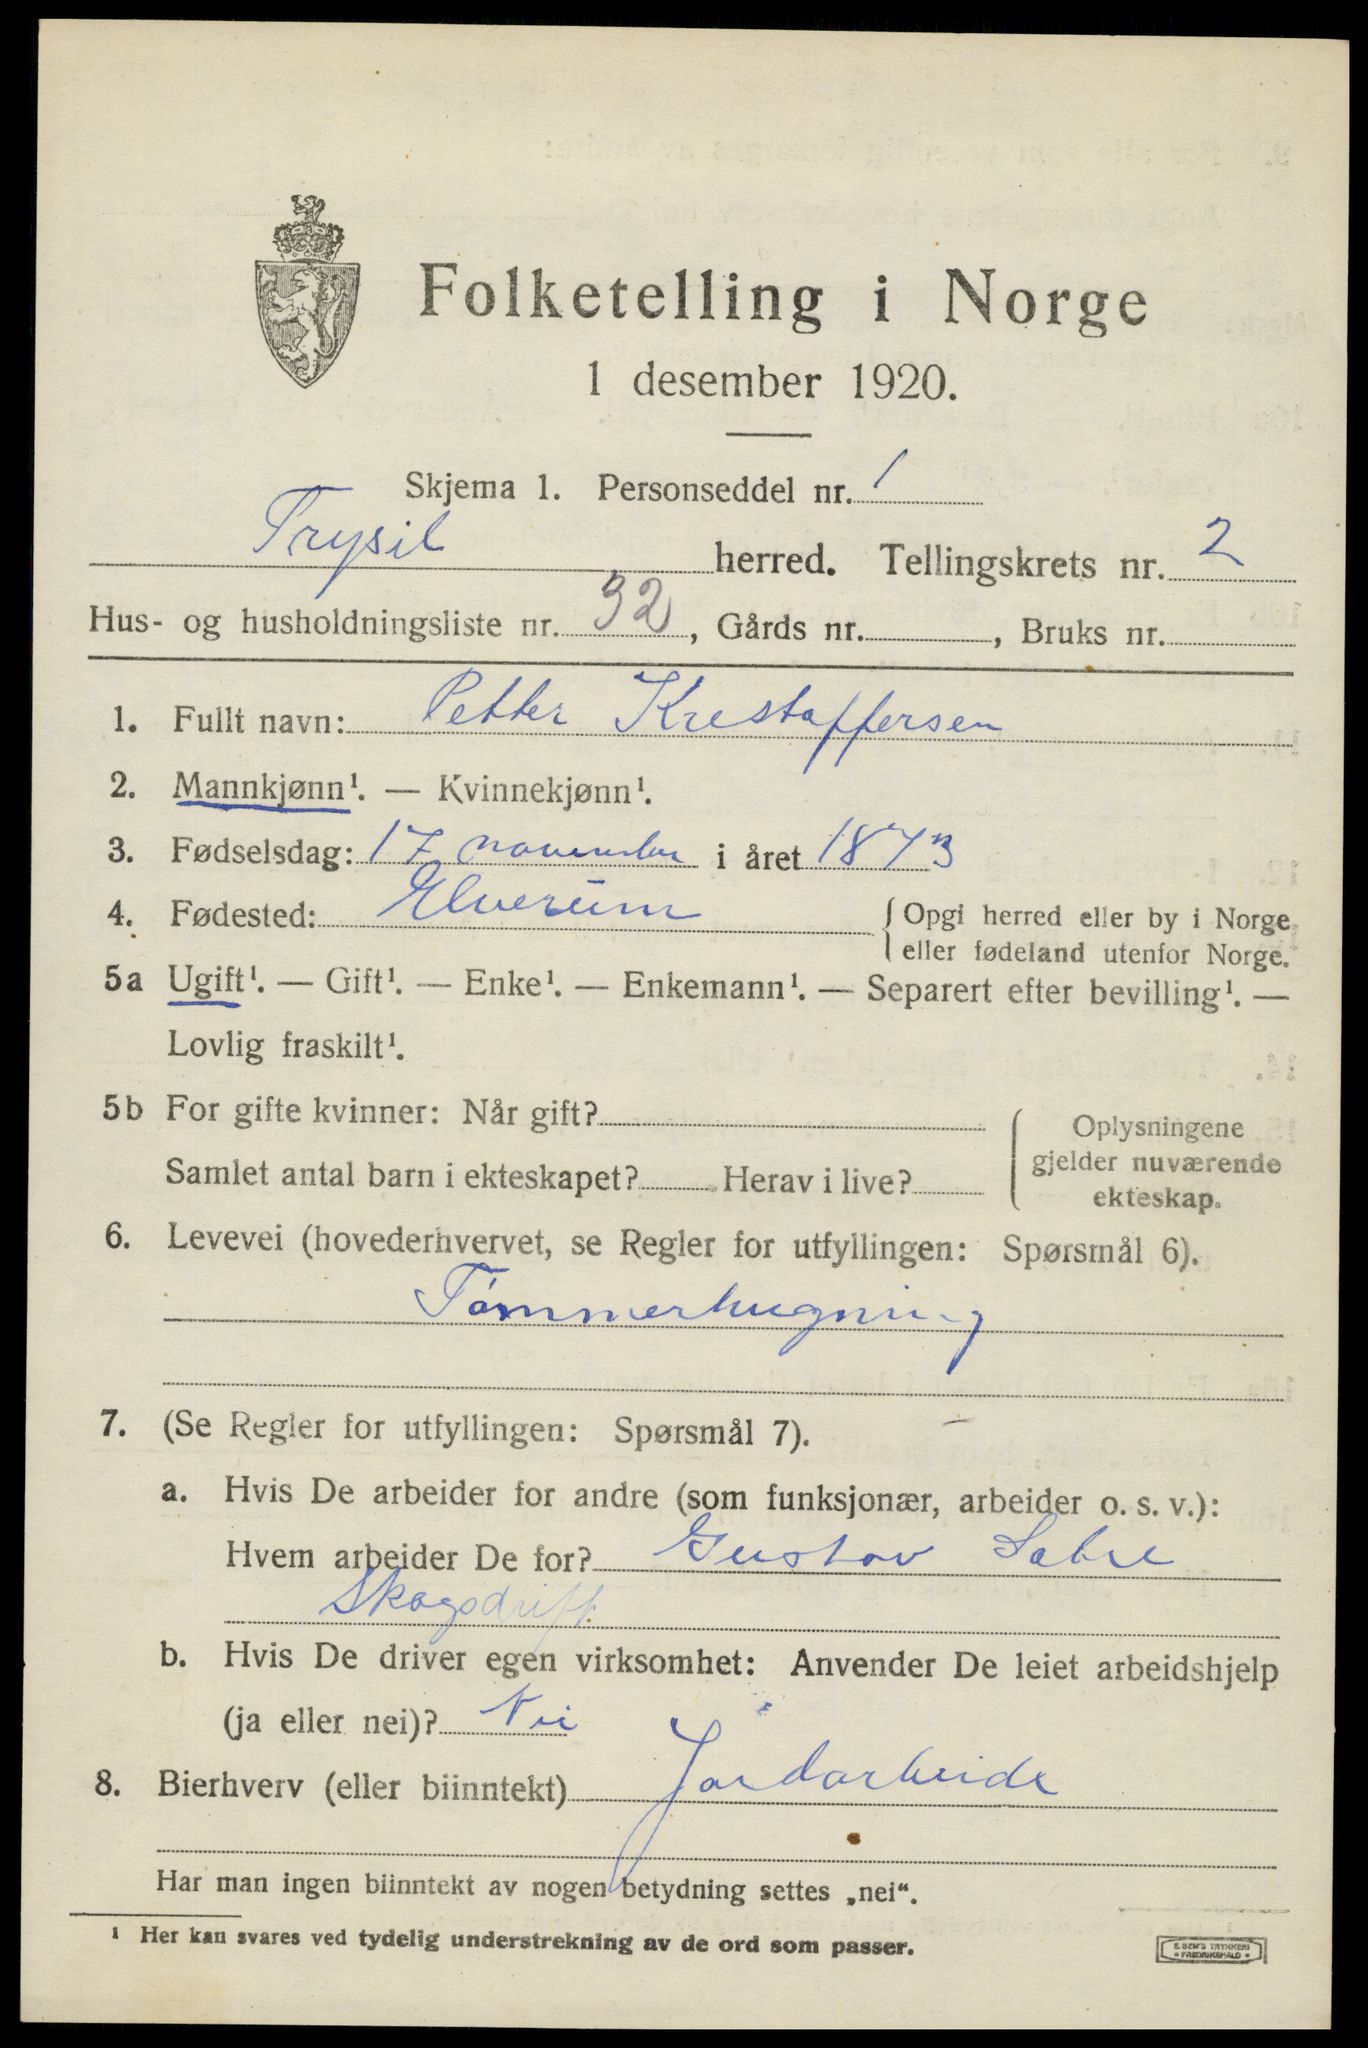 Folketelling i Norge
1 desember 1920.
Skjema 1. Personseddel nr. 1
Trysil herred. Tellingskrets nr. 2
Hus- og husholdningsliste nr. 32, Gårds nr. , Bruks nr.
1. Fullt navn: Petter Krestoffersen
2. Mannkjønn¹. — Kvinnekjønn¹.
3. Fødselsdag: 17 november i året 1873
4. Fødested: Elverum { Opgi herred eller by i Norge
eller fødeland utenfor Norge.
5a Ugift¹. — Gift¹. — Enke¹. — Enkemann¹. — Separert efter bevilling¹. —
Lovlig fraskilt¹.
5b For gifte kvinner: Når gift?
Samlet antal barn i ekteskapet? Herav i live?
Oplysningene
gjelder nuværende
ekteskap.
6. Levevei (hovederhvervet, se Regler for utfyllingen: Spørsmål 6).
Tømmerhugning
7. (Se Regler for utfyllingen: Spørsmål 7).
a. Hvis De arbeider for andre (som funksjonær, arbeider o. s. v.):
Hvem arbeider De for? Gustav
Skogsdrift
b. Hvis De driver egen virksomhet: Anvender De leiet arbeidshjelp
(ja eller nei)? Nei
8. Bierhverv (eller biinntekt) Jordarbeide
Har man ingen biinntekt av nogen betydning settes „nei“.
¹ Her kan svares ved tydelig understrekning av de ord som passer.
E. SEM'S TRYKKERI
* FREDRIKSHALD *